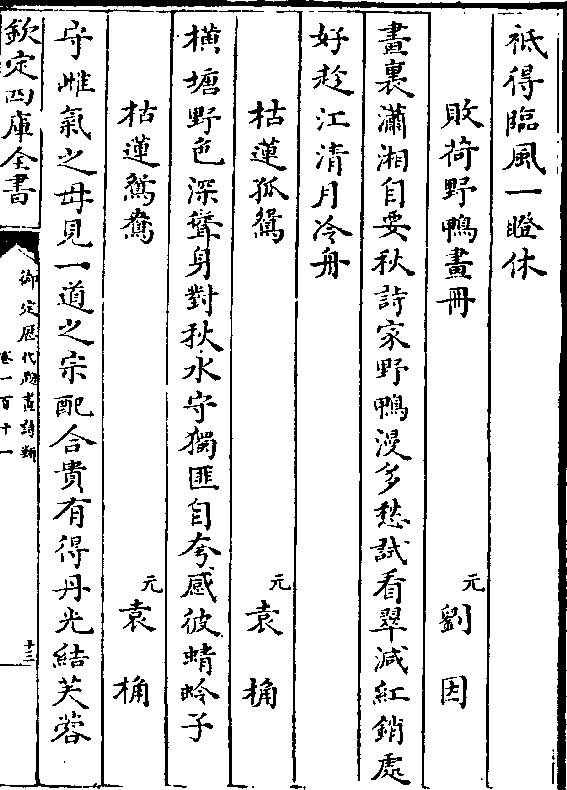 袛得臨風一瞪休
敗荷野鴨畫冊
元劉因
畫裏瀟湘自要秋詩家野鴨漫多愁試看翠減紅銷處
好趁江清月冷舟
枯蓮孤鴛
元袁桷
橫塘野色深聳身對秋水守獨匪自夸感彼蜻蛉子
枯蓮鴛鴦
元袁桷
守雌氣之毋見一道之宗配合貴有得丹光結芙蓉
欽定四庫全書
御定歷代題畫詩類
卷一百十一
十三